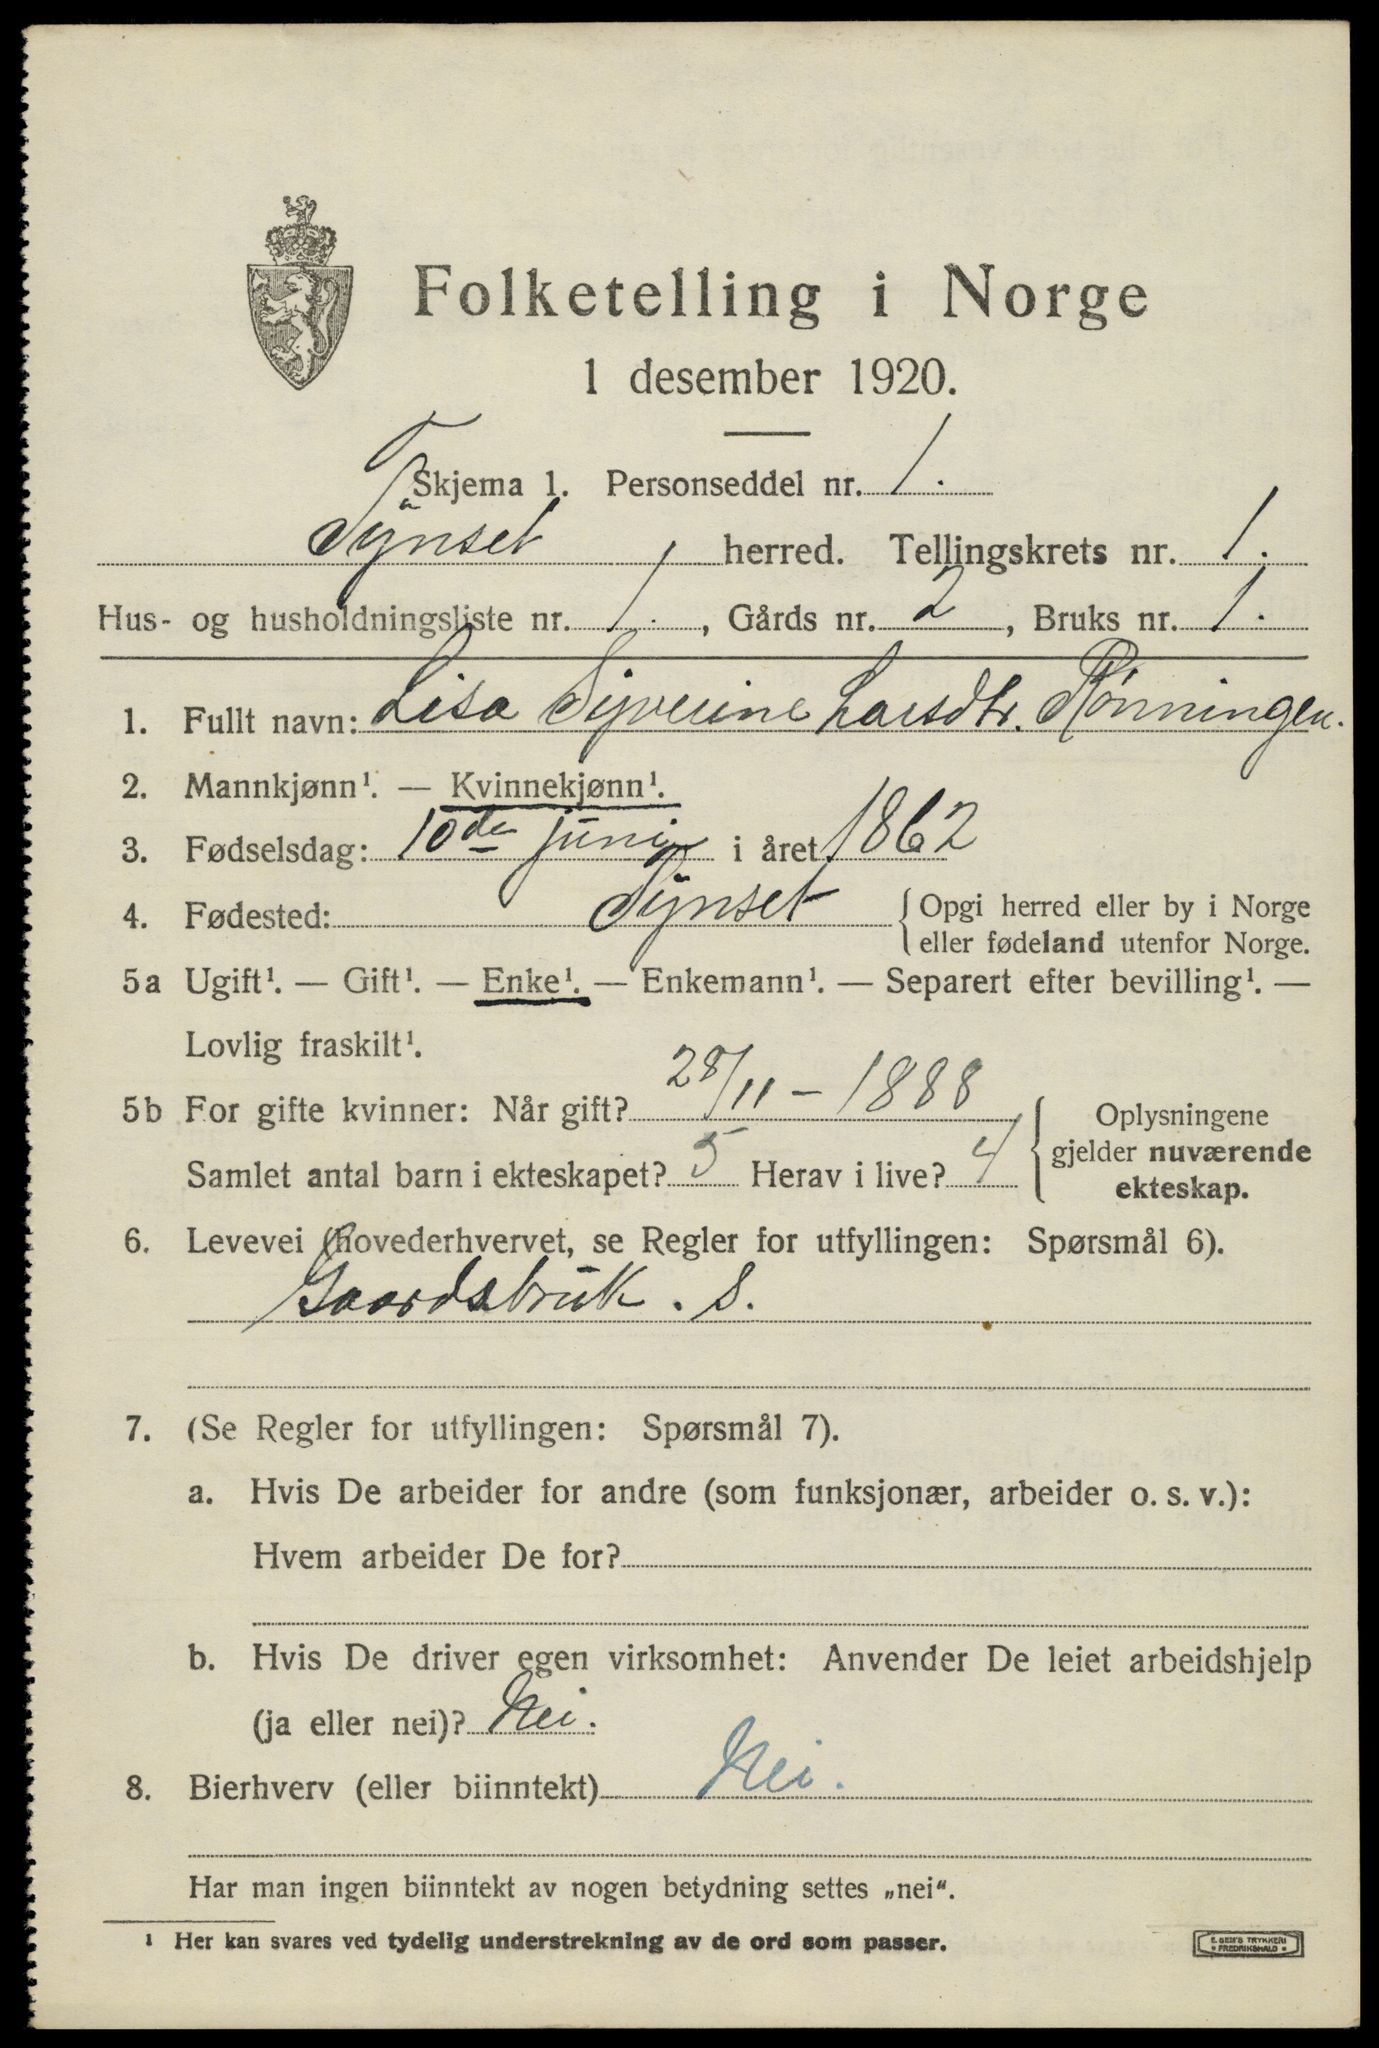 Folketelling i Norge
1 desember 1920.
Skjema 1. Personseddel nr. 1.
Tynset herred. Tellingskrets nr. 1.
Hus- og husholdningsliste nr. 1., Gårds nr. 2, Bruks nr. 1.
1. Fullt navn: Lisa Syverine Larsdtr. Rønningen.
2. Mannkjønn¹. — Kvinnekjønn¹.
3. Fødselsdag: 10de juni i året 1862
4. Fødested: Tynset {Opgi herred eller by i Norge
eller fødeland utenfor Norge.
5a Ugift¹. — Gift¹. — Enke¹. — Enkemann¹. — Separert efter bevilling¹. —
Lovlig fraskilt¹.
5b For gifte kvinner: Når gift? 28/11 – 1888
Samlet antal barn i ekteskapet? 5 Herav i live? 4
{Oplysningene
gjelder nuværende
ekteskap.
6. Levevei (hovederhvervet, se Regler for utfyllingen: Spørsmål 6).
Gaardsbruk. S.
7. (Se Regler for utfyllingen: Spørsmål 7).
a. Hvis De arbeider for andre (som funksjonær, arbeider o. s. v.):
Hvem arbeider De for?
b. Hvis De driver egen virksomhet: Anvender De leiet arbeidshjelp
(ja eller nei)? Nei.
8. Bierhverv (eller biinntekt) Nei.
Har man ingen biinntekt av nogen betydning settes „nei“.
¹ Her kan svares ved tydelig understrekning av de ord som passer.
E. SEM'S TRYKKERI
FREDRIKSHALD